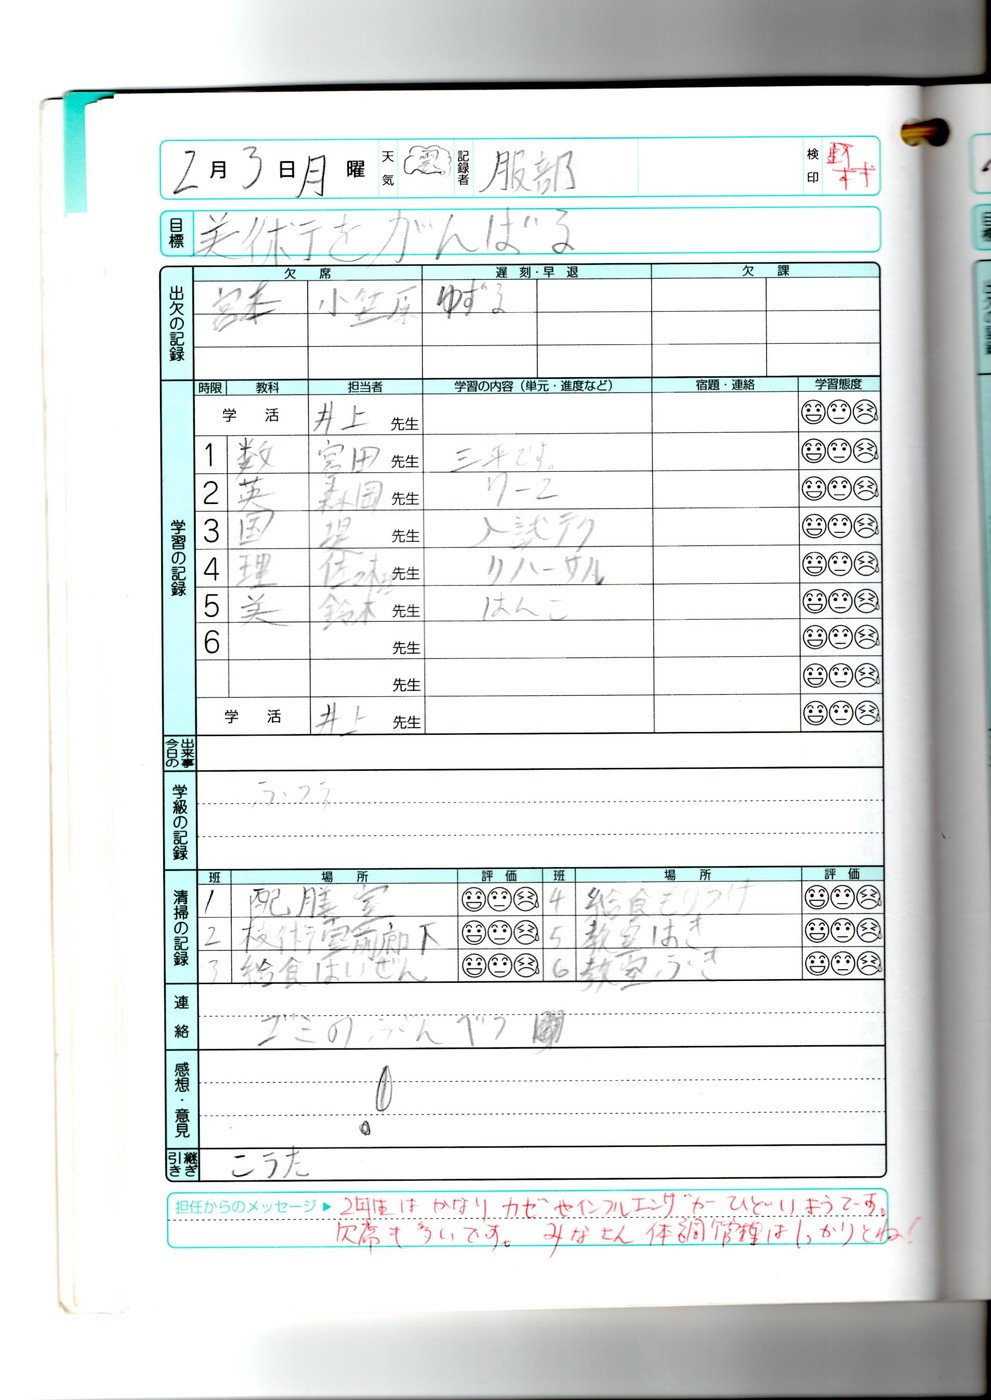 2月3日月曜 天気 雲 記録者 服部 検印
目標 美術テをがんばる
出欠の記録 欠席 遅刻・早退 欠課
宮本 小笠原 ゆずる
学習の記録 時限 教科 担当者 学習の内容（単元・進度など） 宿題・連絡 学習態度
学活 井上 先生
1 数 宮田 先生 三平です。
2 英 森岡 先生 ワーク
3 国 堤 先生 入試テク
4 理 佐々木 先生 リハーサル
5 美 鈴木 先生 はんこ
6 先生
先生
学活 井上 先生
今日の出来事
学級の記録 ふつう
清掃の記録 班 場所 評価 班 場所 評価
1 配膳室 4 給食もりつけ
2 校術室前廊下 5 教室はき
3 給食はいぜん 6 教室ふき
連絡 ゴミのぶんべつ
感想・意見 !
引き継ぎ こうた
担任からのメッセージ▶ 2年生はかなりカゼやインフルエンザがひどいようです。
欠席も多いです。みなさん体調管理はしっかりとね!